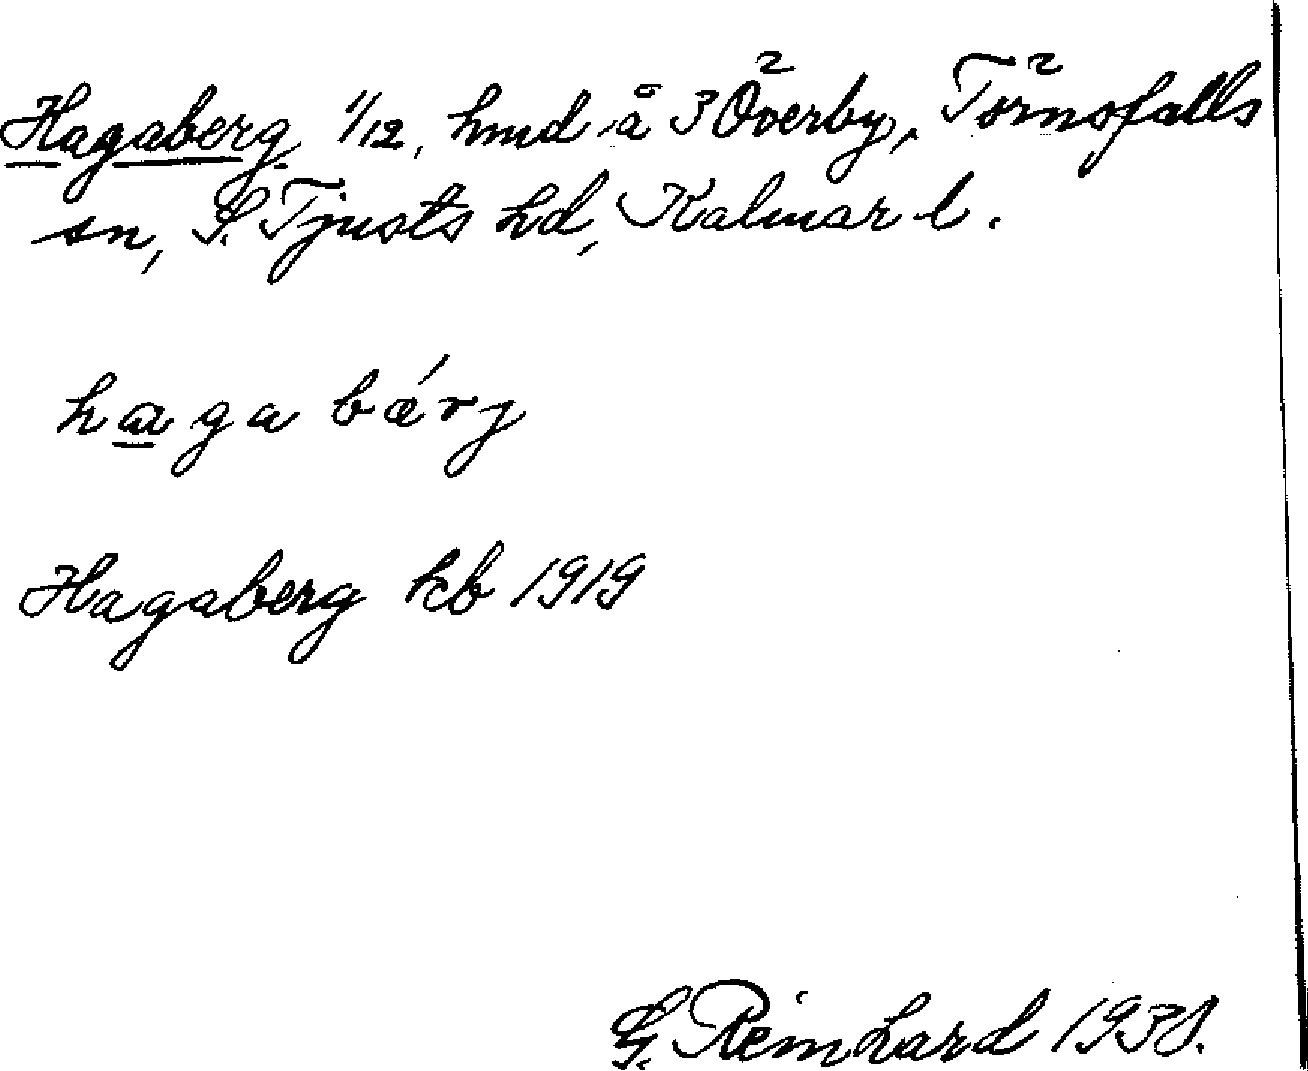 Hagaberg 1/12, hmd å 3 Överby, Törnsfalls
sn, S. Tjusts hd, Kalmar l.
haga bǽrj
Hagaberg kb 1919
G. Reinhard 1938.